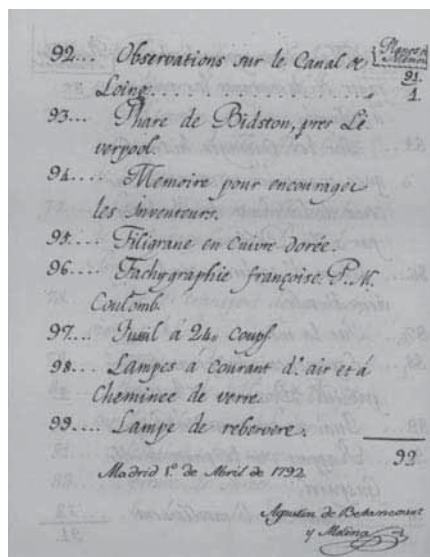 Planos de
Memori
91.
92... Observations sur le Canal de
Loing.................. 1.
93... Phare de Bidston, pres Lé
verpool.
94.... Memoire pour encourager
les Inventeurs.
95.... Filigrane en Cuivre Dorée.
96.... Tachygraphie françoise. P. M.
Coulomb.
97.... Fusil à 24. coups
98... Lampes à Courant d'air et á
Cheminee de verre.
99.... Lampe de rebervere.
92
Madrid 1º de Abril de 1792.
Agustin de Betancourt
y Molina